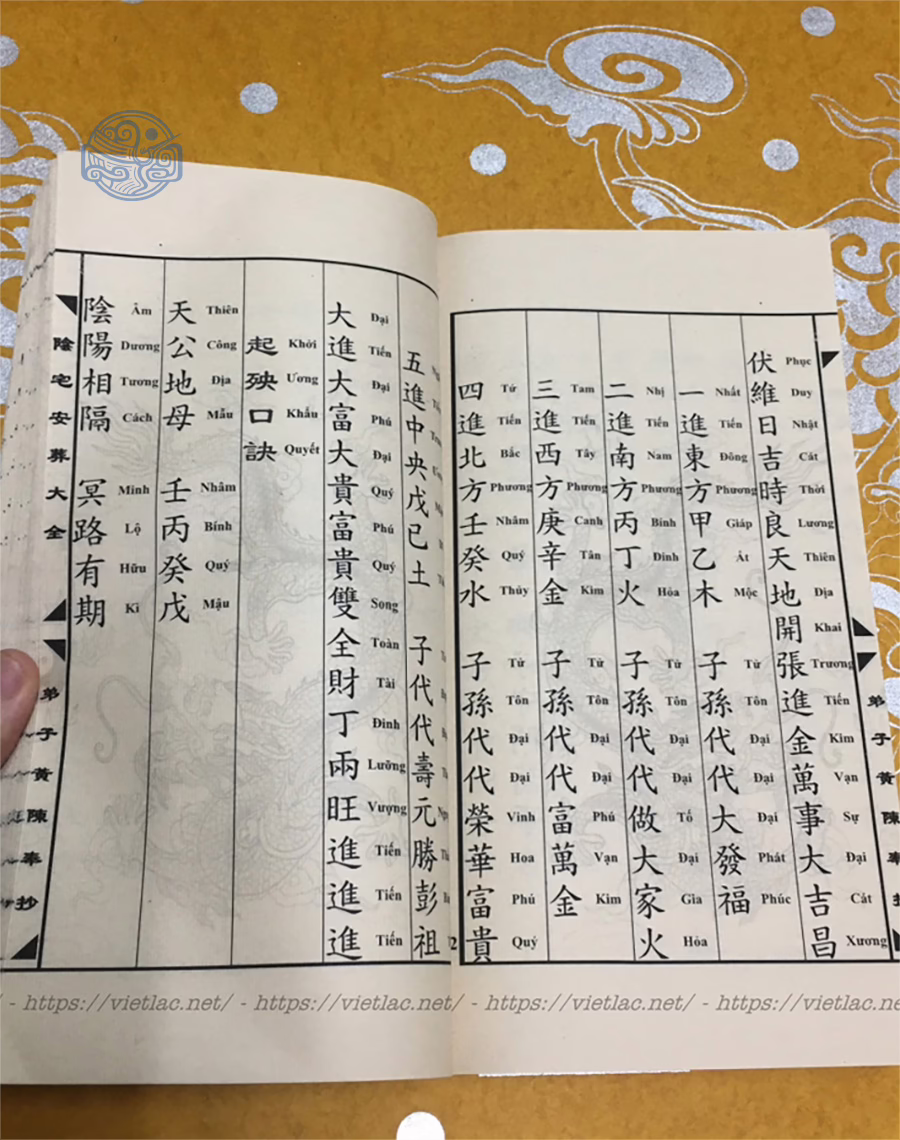 伏維日吉時良天地開張進金萬事大吉昌
Phục Duy Nhật Cát Thời Lương Thiên Địa Khai Trương Tiến Kim Vạn Sự Đại Cát Xương
一進東方甲乙木 子孫代代大發福
Nhất Tiến Đông Phương Giáp Ất Mộc Tử Tôn Đại Đại Đại Phát Phúc
二進南方丙丁火 子孫代代做大家火
Nhị Tiến Nam Phương Bính Đinh Hỏa Tử Tôn Đại Đại Tố Đại Gia Hỏa
三進西方庚辛金 子孫代代富萬金
Tam Tiến Tây Phương Canh Tân Kim Tử Tôn Đại Đại Phú Vạn Kim
四進北方壬癸水 子孫代代榮華富貴
Tứ Tiến Bắc Phương Nhâm Quý Thủy Tử Tôn Đại Đại Vinh Hoa Phú Quý
弟子黃陳奉
五進中央戊己土 子代代壽元勝彭祖
大進大富大貴富貴雙全財丁兩旺進進進
Đại Tiến Đại Phú Đại Quý Phú Quý Song Toàn Tài Đinh Lưỡng Vượng Tiến Tiến Tiến
起殃口訣
Khởi Ương Khẩu Quyết
天公地母 壬丙癸戊
Thiên Công Địa Mẫu Nhâm Bính Quý Mậu
陰陽相隔 冥路有期
Âm Dương Tương Cách Minh Lộ Hữu Kì
陰宅安葬大全
弟子黃陳奉抄
- https://vietlac.net/ - https://vietlac.net/ - https://vietlac.net/ -